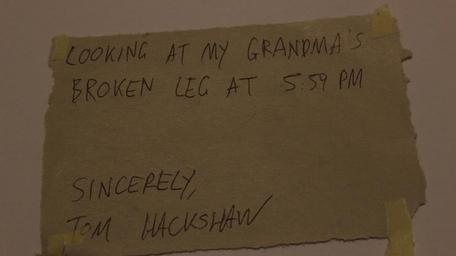 LOOKING AT MY GRANDMA'S
BROKEN LEG AT 5:59 PM
SINCERELY,
TOM HACKSHAW